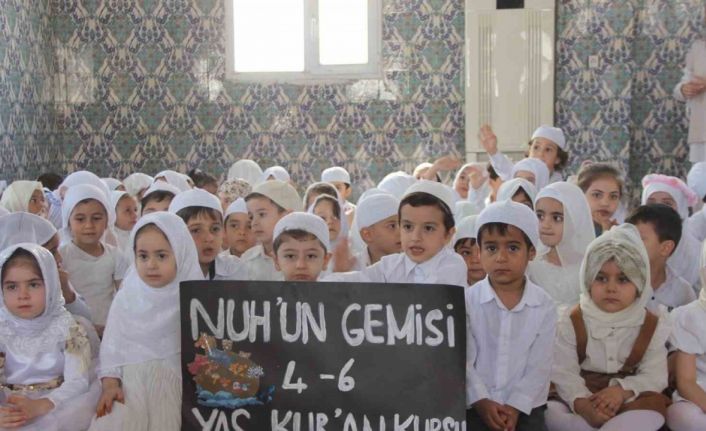 NUH'UN GEMİSİ
4-6
YAŞ KUR'AN KURSU